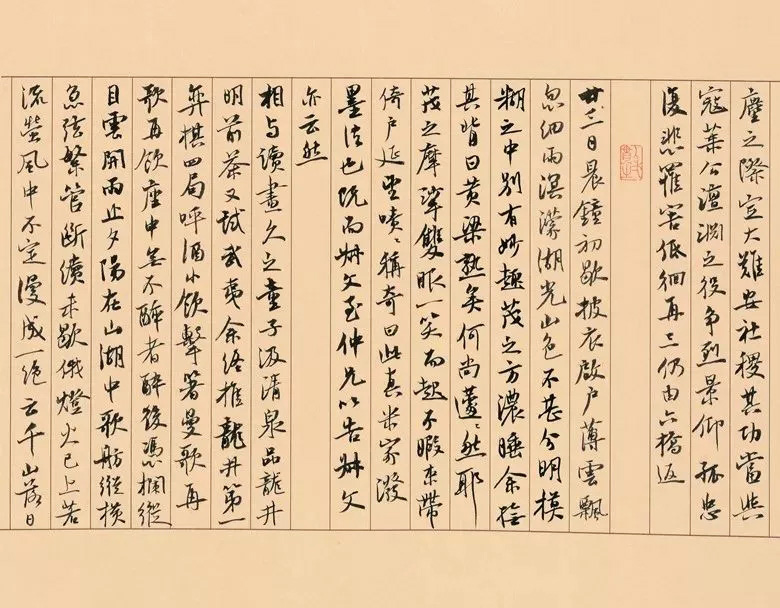 塵之際定大難安社稷其功當與
寇萊公澶淵之役爭烈景仰孤忠
復悲罹害低徊再三仍由六橋返
廿三日晨鐘初歇披衣啟戶薄雲飄
忽細雨溟濛湖光山色不甚分明模
糊之中別有妙趣茂之方濃睡余捻
其背曰黃粱熟矣何尚蘧〻然耶
茂之摩挲雙眼一笑而起不暇束帶
倚戶延望嘖〻稱奇曰此真米家潑
墨法也既而叔文至仲兄以告叔文
亦云然
相與讀畫久之童子汲清泉品龍井
明前茶又試武夷余終推龍井第一
弈棋四局呼酒小飲擊箸曼歌再
歌再飲座中無不醉者醉後憑欄縱
目雲開雨止夕陽在山湖中歌舫縱橫
急弦繁管斷續未歇俄燈火已上若
流螢風中不定漫成一絕云千山落日